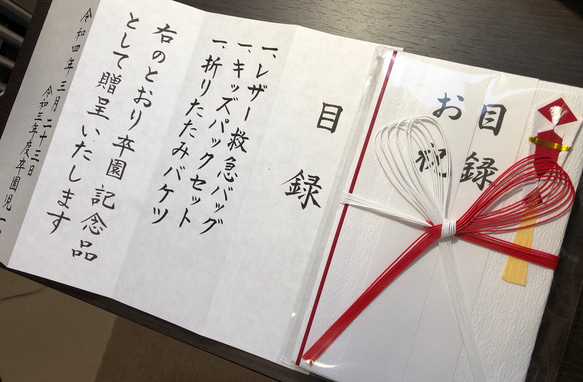 目録
一、レザー救急バッグ
一、キッズバックセット
一、折りたたみバケツ
右のとおり卒園記念品
として贈呈いたします
令和四年三月二十三日
令和三年度卒園児一
目録
お祝